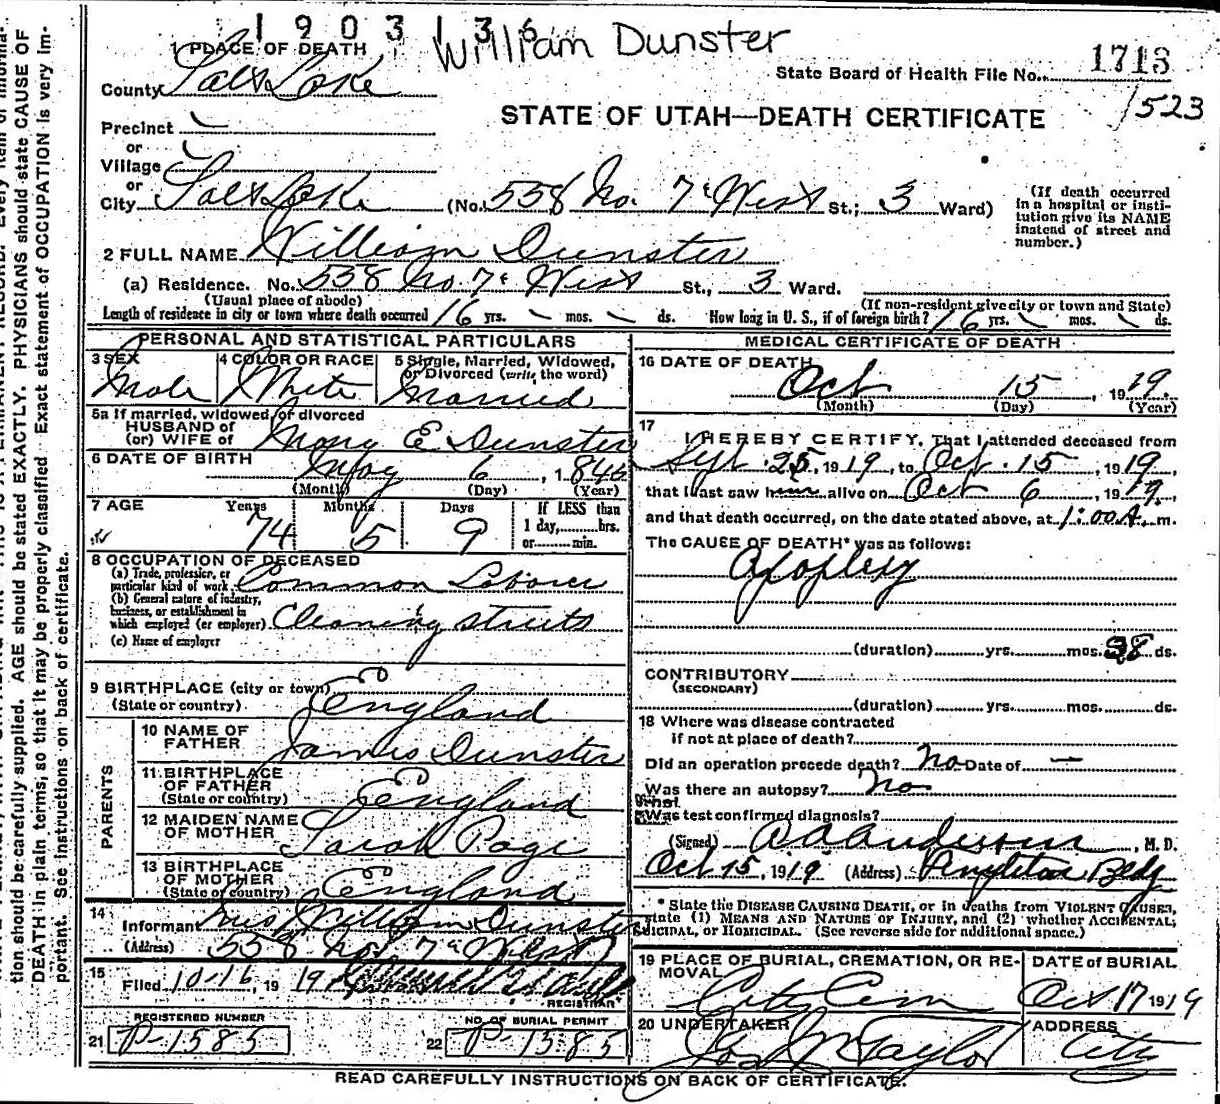 1903135
William Dunster
1 PLACE OF DEATH
State Board of Health File No. 1713
County Salt Lake
STATE OF UTAH—DEATH CERTIFICATE
1523
Precinct
or
Village
or
City Salt Lake (No. 558 No. 7th West St.; 3 Ward)
(If death occurred in a hospital or institution give its NAME instead of street and number.)
2 FULL NAME William Dunster
(a) Residence. No. 558 No. 7th West St., 3 Ward.
(Usual place of abode) (If non-resident give city or town and State)
Length of residence in city or town where death occurred 16 yrs. - mos. - ds. How long in U. S., if of foreign birth? 16 yrs. - mos. - ds.
PERSONAL AND STATISTICAL PARTICULARS
3 SEX Male
4 COLOR OR RACE White
5 Single, Married, Widowed, or Divorced (write the word) Married
5a If married, widowed, or divorced
HUSBAND of
(or) WIFE of Mary E Dunster
6 DATE OF BIRTH May 6, 1846
(Month) (Day) (Year)
7 AGE Years 74 Months 5 Days 9 If LESS than 1 day,........hrs. or........min.
8 OCCUPATION OF DECEASED
(a) Trade, profession, or particular kind of work Common Laborer
(b) General nature of industry, business, or establishment in which employed (or employer) Cleaning streets
(c) Name of employer
9 BIRTHPLACE (city or town)
(State or country) England
PARENTS
10 NAME OF FATHER James Dunster
11 BIRTHPLACE OF FATHER (State or country) England
12 MAIDEN NAME OF MOTHER Sarah Page
13 BIRTHPLACE OF MOTHER (State or country) England
14
Informant Mrs William Dunster
(Address) 558 No. 7th West
15
Filed 10-16, 19 19
REGISTRAR
REGISTERED NUMBER
21 P-1585
NO. OF BURIAL PERMIT
22 P-1585
MEDICAL CERTIFICATE OF DEATH
16 DATE OF DEATH
Oct 15, 1919.
(Month) (Day) (Year)
17
I HEREBY CERTIFY, That I attended deceased from
Sept. 25, 1919, to Oct. 15, 1919,
that I last saw him alive on Oct 6, 1919,
and that death occurred, on the date stated above, at 1:00 A. m.
The CAUSE OF DEATH* was as follows:
Apoplexy
(duration) yrs. mos. 38 ds.
CONTRIBUTORY
(SECONDARY)
(duration) yrs. mos. ds.
18 Where was disease contracted
if not at place of death?
Did an operation precede death? No Date of —
Was there an autopsy? No
What
Was test confirmed diagnosis?
(Signed) Anderson, M. D.
Oct 15, 1919 (Address) Bldg
* State the DISEASE CAUSING DEATH, or in deaths from VIOLENT CAUSES,
state (1) MEANS AND NATURE OF INJURY, and (2) whether ACCIDENTAL,
SUICIDAL, or HOMICIDAL. (See reverse side for additional space.)
19 PLACE OF BURIAL, CREMATION, OR REMOVAL City Cem
DATE of BURIAL Oct 17 1919
20 UNDERTAKER Jos Wm Taylor
ADDRESS City
READ CAREFULLY INSTRUCTIONS ON BACK OF CERTIFICATE.
tion should be carefully supplied. AGE should be stated EXACTLY. PHYSICIANS should state CAUSE OF
DEATH in plain terms, so that it may be properly classified. Exact statement of OCCUPATION is very im-
portant. See instructions on back of certificate.